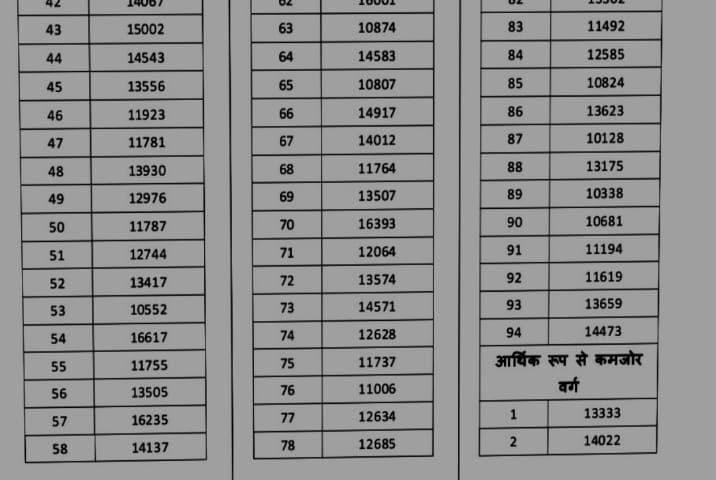 42 14067
43 15002
44 14543
45 13556
46 11923
47 11781
48 13930
49 12976
50 11787
51 12744
52 13417
53 10552
54 16617
55 11755
56 13505
57 16235
58 14137
62 16001
63 10874
64 14583
65 10807
66 14917
67 14012
68 11764
69 13507
70 16393
71 12064
72 13574
73 14571
74 12628
75 11737
76 11006
77 12634
78 12685
82
83 11492
84 12585
85 10824
86 13623
87 10128
88 13175
89 10338
90 10681
91 11194
92 11619
93 13659
94 14473
आर्थिक रूप से कमजोर
वर्ग
1 13333
2 14022